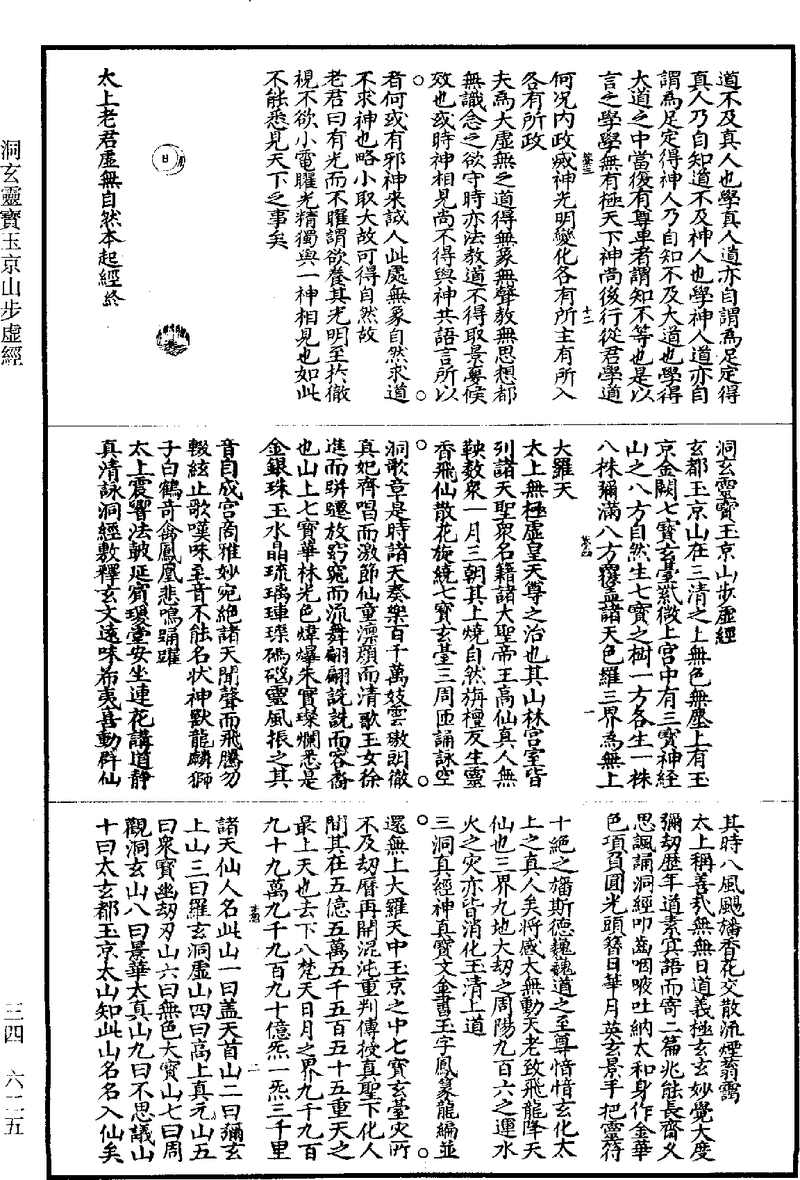 道不及真人也學真人道亦自謂為足定得
真人乃自知道不及神人也學神人道亦自
謂為足定得神人乃自知不及大道也學得
大道之中當復有尊卑者謂知不等也是以
言之學學無有極天下神尚後行從君學道
何況内政臧神光明變化各有所主有所入
各有所政
夫為大虛無之道得無象無聲教無思想都
無識念之欲守時亦法教道不得取景夢候
效也或時神相見尚不得與神共語言所以
者何或有邪神来試人此處無象自然求道
不求神也略小取大故可得自然故
老君曰有光而不曜謂欲養其光明至扵徹
視不欲小電曜光精獨與一神相見也如此
不能悉見天下之事矣
太上老君虛無自然本起經終
洞玄靈寳玉京山步虛經
玄都玉京山在三清之上無色無塵上有玉
京金闕七寳玄臺紫微上宫中有三寳神經
山之八方自然生七寳之樹一方各生一株
八株彌滿八方覆蓋諸天包羅三界為無上
大羅天
太上無極虛皇天尊之治也其山林宫室皆
列諸天聖衆名籍諸大聖帝王高仙真人無
鞅數衆一月三朝其上燒自然栴檀反生靈
香飛仙散花旋繞七寳玄臺三周匝誦詠空
洞歌章是時諸天奏樂百千萬妓雲璈朗徹
真妃齊唱而激節仙童凛顔而清歌玉女徐
進而跰躚放窈窕而流舞翩翩詵詵而容裔
也山上七寳華林光色煒爆朱實璨爛悉是
金銀珠玉水晶琉璃硨磲碼磘靈風振之其
音自成宫商雅妙宛絶諸天聞聲而飛騰勿
輟絃止歌嘆味至音不能名状神獸龍麟獅
子白鶴奇禽鳳凰悲鳴踊躍
太上震響法皷延賓瓊堂安坐連花講道静
真清詠洞經敷釋玄文遠味希夷喜動群仙
其時八風颺旛香花交散流煙蓊靄
太上稱善㢤無無日道義極玄玄妙覺大度
彌劫歴年道素寡語而寄二篇兆能長齋久
思諷誦洞經叩齒咽啵吐納太和身作金華
色項負圓光頭簪日華月英玄景手把靈符
十絶之旛斯德巍巍道之至尊愔愔玄化太
上之真人矣將感太無動天老致飛龍降天
仙也三界九地大劫之周陽九百六之運水
火之灾亦皆消化玉清上道
三洞真經神真寳文金書玉字鳳篆龍編並
還無上大羅天中玉京之中七寳玄臺灾所
不及劫曆再開混沌重判傳授真聖下化人
間其在五億五萬五千五百五十五重天之
最上天也去下八梵天日月之界九千九百
九十九萬九千九百九十億炁一炁三千里
諸天仙人名此山一曰蓋天首山二曰彌玄
上山三曰羅玄洞虛山四曰高上真元山五
曰衆寳幽劫刃山六曰無色大寳山七曰周
觀洞玄山八曰景華太真山九曰不思議山
十曰太玄都玉京太山知此山名名入仙矣
洞玄靈寶玉京山步虛經
三四 六二五